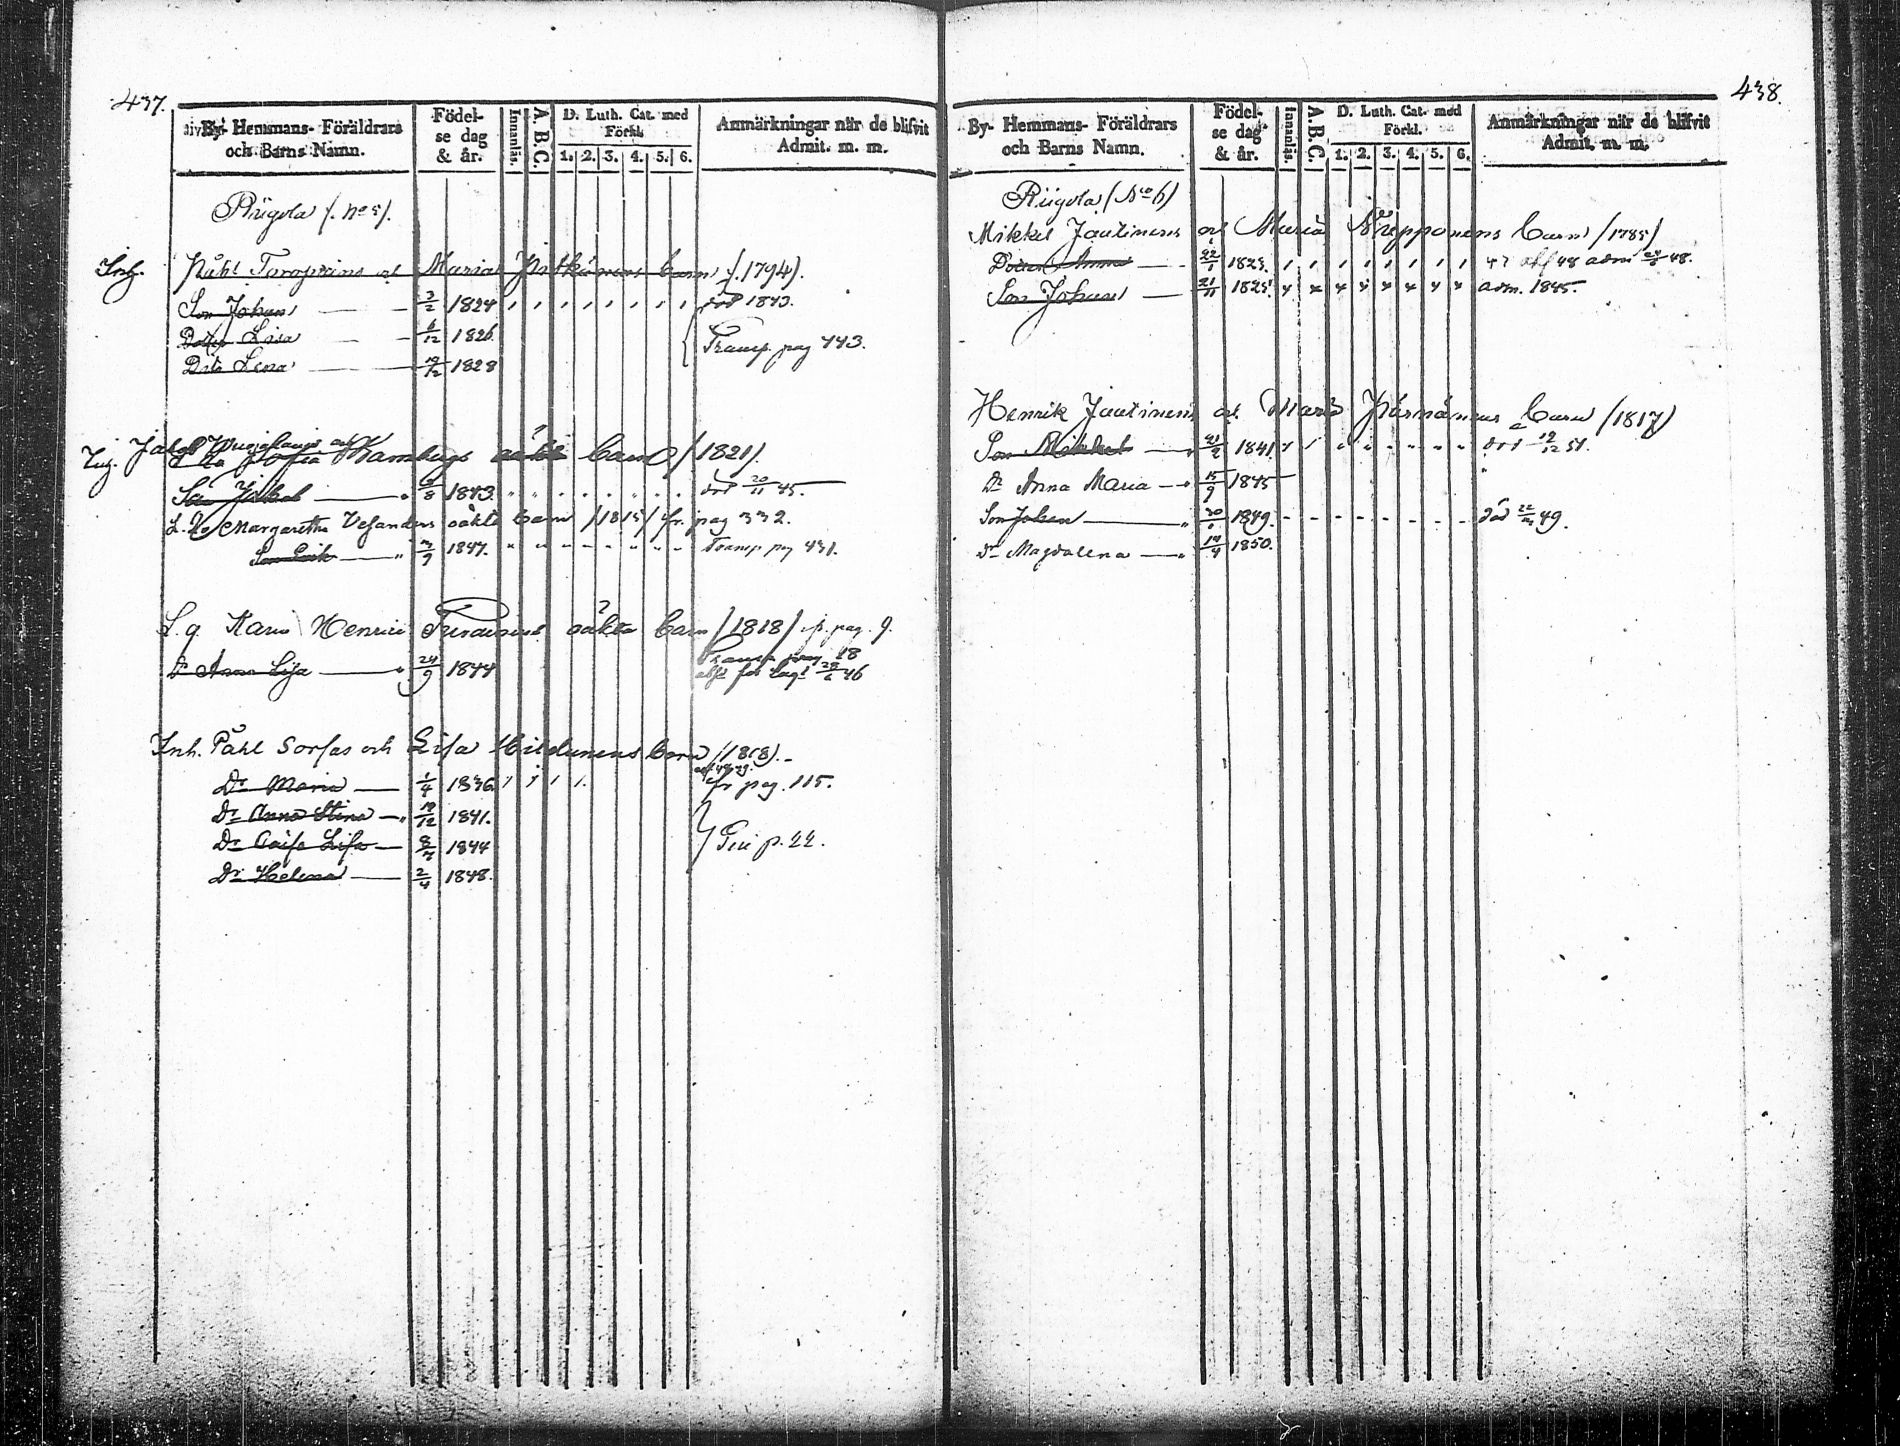 437.
By- Hemmans- Föräldrars och Barns Namn.
Födel-se dag & år.
Innanläs.
A.B.C.
D. Luth. Cat. med Förkl.
1. 2. 3. 4. 5. 6.
Anmärkningar när de blifvit Admit. m. m.
Riigola (No 5).
Inh. Påhl Toropains och Maria Pitkänens barn (1794).
Son Johan 3/2 1824 död 1843.
Dotter Lisa 6/12 1826
Dito Lena 19/12 1828
Transp. pag 443.
Inh. Jakob och
Sofia barn (1821).
Son Jakob 1843. död 20/11 45.
Margaretha Vesanders oäkta barn (1815) fr. pag 332.
Son Erik 3/9 1847. Transp pag 431.
L. q. Karin Henrici oäkta barn (1818) fr. pag. 9.
Dr Anna Lisa 24/9 1844 Transp pag 18
Inh. Påhl Sorsas och Lisa Hildunens barn (1808).
Dr Maria 1/4 1836 fr pag. 115.
Dr Anna Stina 19/12 1841.
Dr Caisa Lisa 8/7 1844
Dr Helena 2/4 1848.
p. 22.
438.
By- Hemmans- Föräldrars och Barns Namn.
Födel-se dag & år.
Innanläs.
A.B.C.
D. Luth. Cat. med Förkl.
1. 2. 3. 4. 5. 6.
Anmärkningar när de blifvit Admit. m. m.
Riigola (No 6)
Mikkel Jautinens och Maria Nepponens barn (1785)
Dotter Anna 22/1 1823. 48 adm 48.
Son Johan 21/11 1825 adm. 1845.
Henrik Jautinens och Maria Pärnänens barn (1817)
Son Mikkel 21/9 1841 död 19/12 51.
Dr Anna Maria 15/9 1845
Son Johan 30/1 1849. död 49.
Dr Magdalena 14/4 1850.